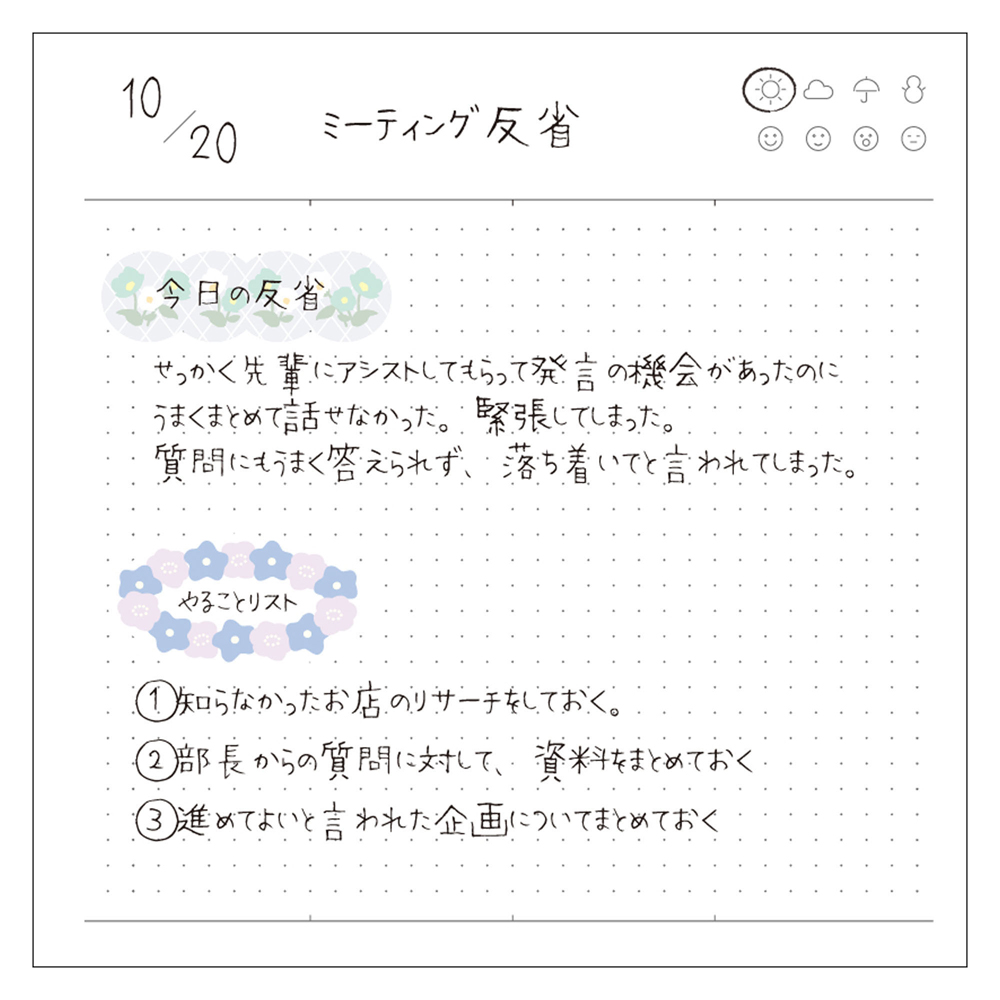 10/20
ミーティング反省
今日の反省
せっかく先輩にアシストしてもらって発言の機会があったのに
うまくまとめて話せなかった。緊張してしまった。
質問にもうまく答えられず、落ち着いてと言われてしまった。
やることリスト
①知らなかったお店のリサーチをしておく。
②部長からの質問に対して、資料をまとめておく
③進めてよいと言われた企画についてまとめておく